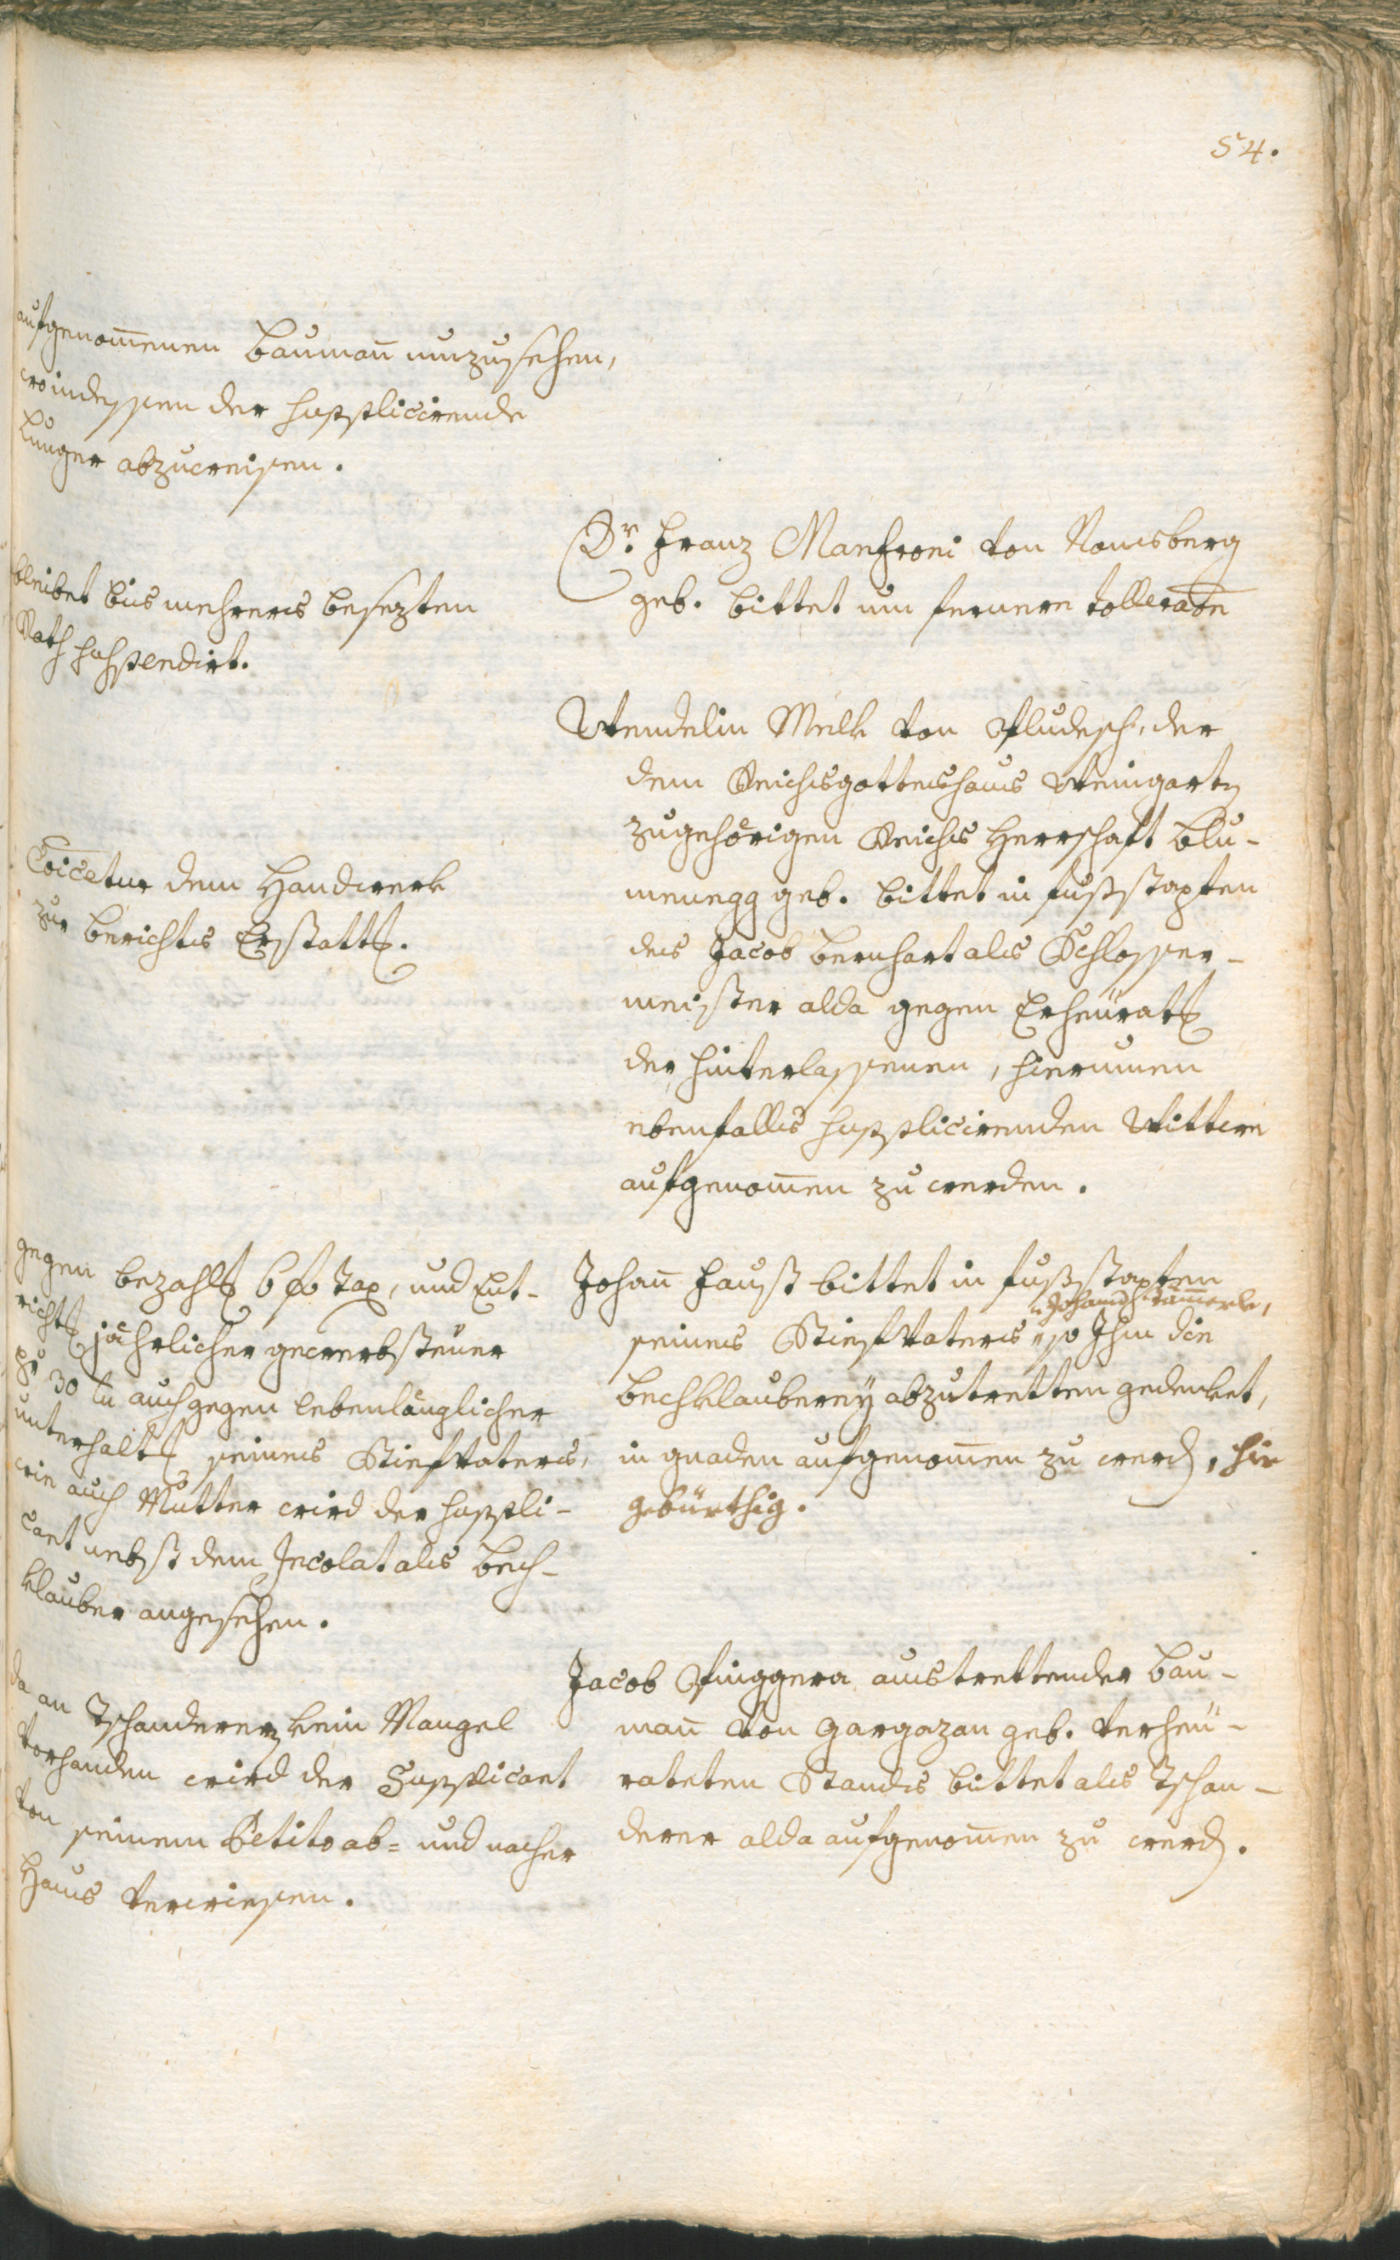 54.
aufgenom̅enen Baumañ umzusehen,
wo indessen der supplicirende
Lunger abzuweisen.
Dr. Franz Manfroni von Romsberg
geb. bittet um fernere tolleraōn
bleibet bis mehrers besezten
Rath suspendirt.
Wendelin Melk von Pludesch, der
dem Reichsgotteshaus Weingarten
zugehörigen Reichs Herrschaft Blu-
menegg geb. bittet in fußstapfen
des Jacob Bernhart als Schlosser-
meister alda gegen Erheürattung
der hinterlassenen, hierumen
ebenfalls supplicirenden Wittwe
aufgenom̅en zu werden.
Cōicetur dem Handwerk
zur Berichts Erstattung.
Johañ Faust bittet in fußstapfen
seines Stiefvaters so Ihm die
Bechklauberey abzutretten gedenket,
in gnaden aufgenom̅en zu werden, hie
gebürthig.
gegen Bezahlung 6 fl Tax, und Ent-
richtung jährlicher gewerbsteüer
pr 30 kr auch gegen lebenlänglicher
unterhaltung seines Stiefvaters,
wie auch Mutter wird der suppli-
cant nebst dem Incolat als Bech-
klauber angesehen.
Jacob Pinggera austrettender Bau-
mañ von Gargazan geb. verheü-
rateten Stands bittet als Tschan-
derer alda aufgenom̅en zu werden.
da an Tschanderer kein Mangel
vorhanden wird der Supplicant
von seinem Petito ab- und nacher
Haus verwiesen.